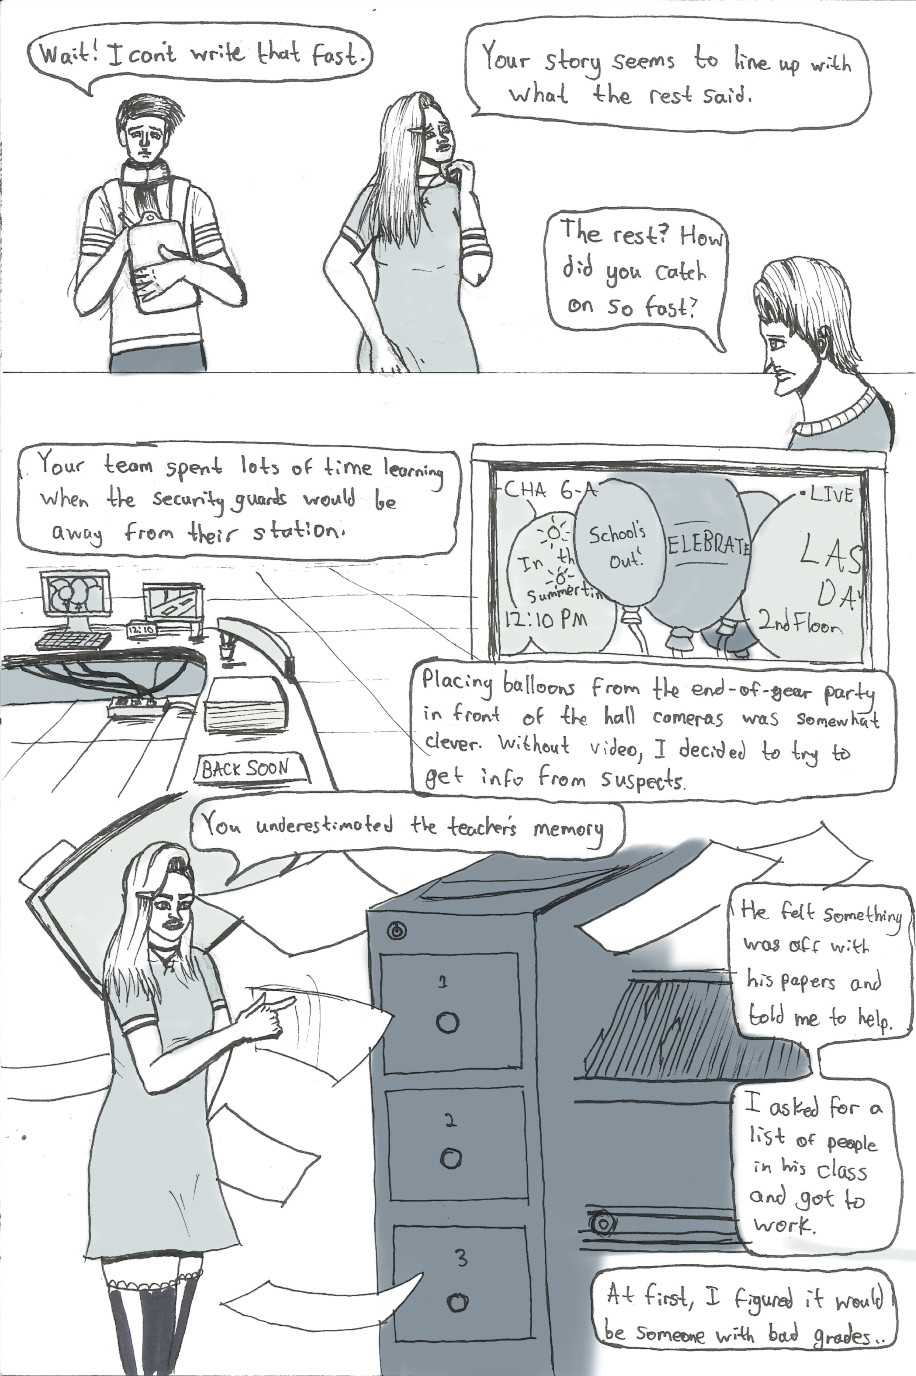 Wait! I can't write that fast.
Your story seems to line up with
what the rest said.
The rest? How
did you catch
on so fast?
Your team spent lots of time learning
when the security guards would be
away from their station.
12:10
BACK SOON
CHA 6-A
• LIVE
In th
Summertim
School's
Out!
ELEBRATE
LAS
DA
12:10 PM
2nd Floor
Placing balloons from the end-of-year party
in front of the hall cameras was somewhat
clever. Without video, I decided to try to
get info from suspects.
You underestimated the teacher's memory
He felt something
was off with
his papers and
told me to help.
1
2
3
I asked for a
list of people
in his class
and got to
work.
At first, I figured it would
be someone with bad grades..